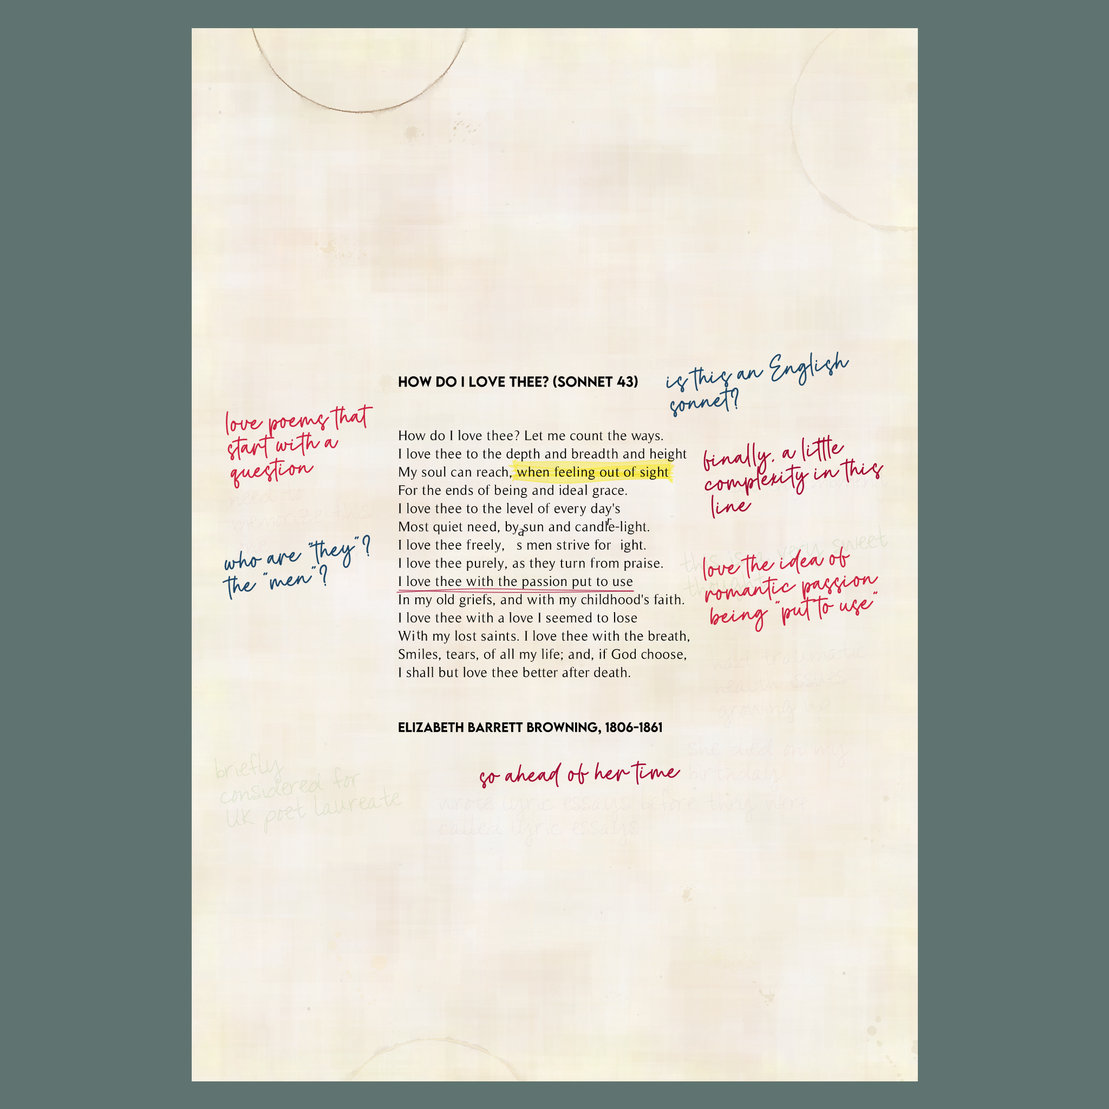 HOW DO I LOVE THEE? (SONNET 43)
is this an English
sonnet?
love poems that
start with a
question
How do I love thee? Let me count the ways.
I love thee to the depth and breadth and height
My soul can reach, when feeling out of sight
For the ends of being and ideal grace.
I love thee to the level of every day's
Most quiet need, by sun and candle-light.
I love thee freely, as men strive for right.
I love thee purely, as they turn from praise.
I love thee with the passion put to use
In my old griefs, and with my childhood's faith.
I love thee with a love I seemed to lose
With my lost saints. I love thee with the breath,
Smiles, tears, of all my life; and, if God choose,
I shall but love thee better after death.
finally, a little
complexity in this
line
who are "they"?
the "men"?
love the idea of
romantic passion
being "put to use"
this is a very sweet
ELIZABETH BARRETT BROWNING, 1806-1861
so ahead of her time
briefly
considered for
UK poet laureate
birthday
wrote lyric essays before they were
called lyric essays